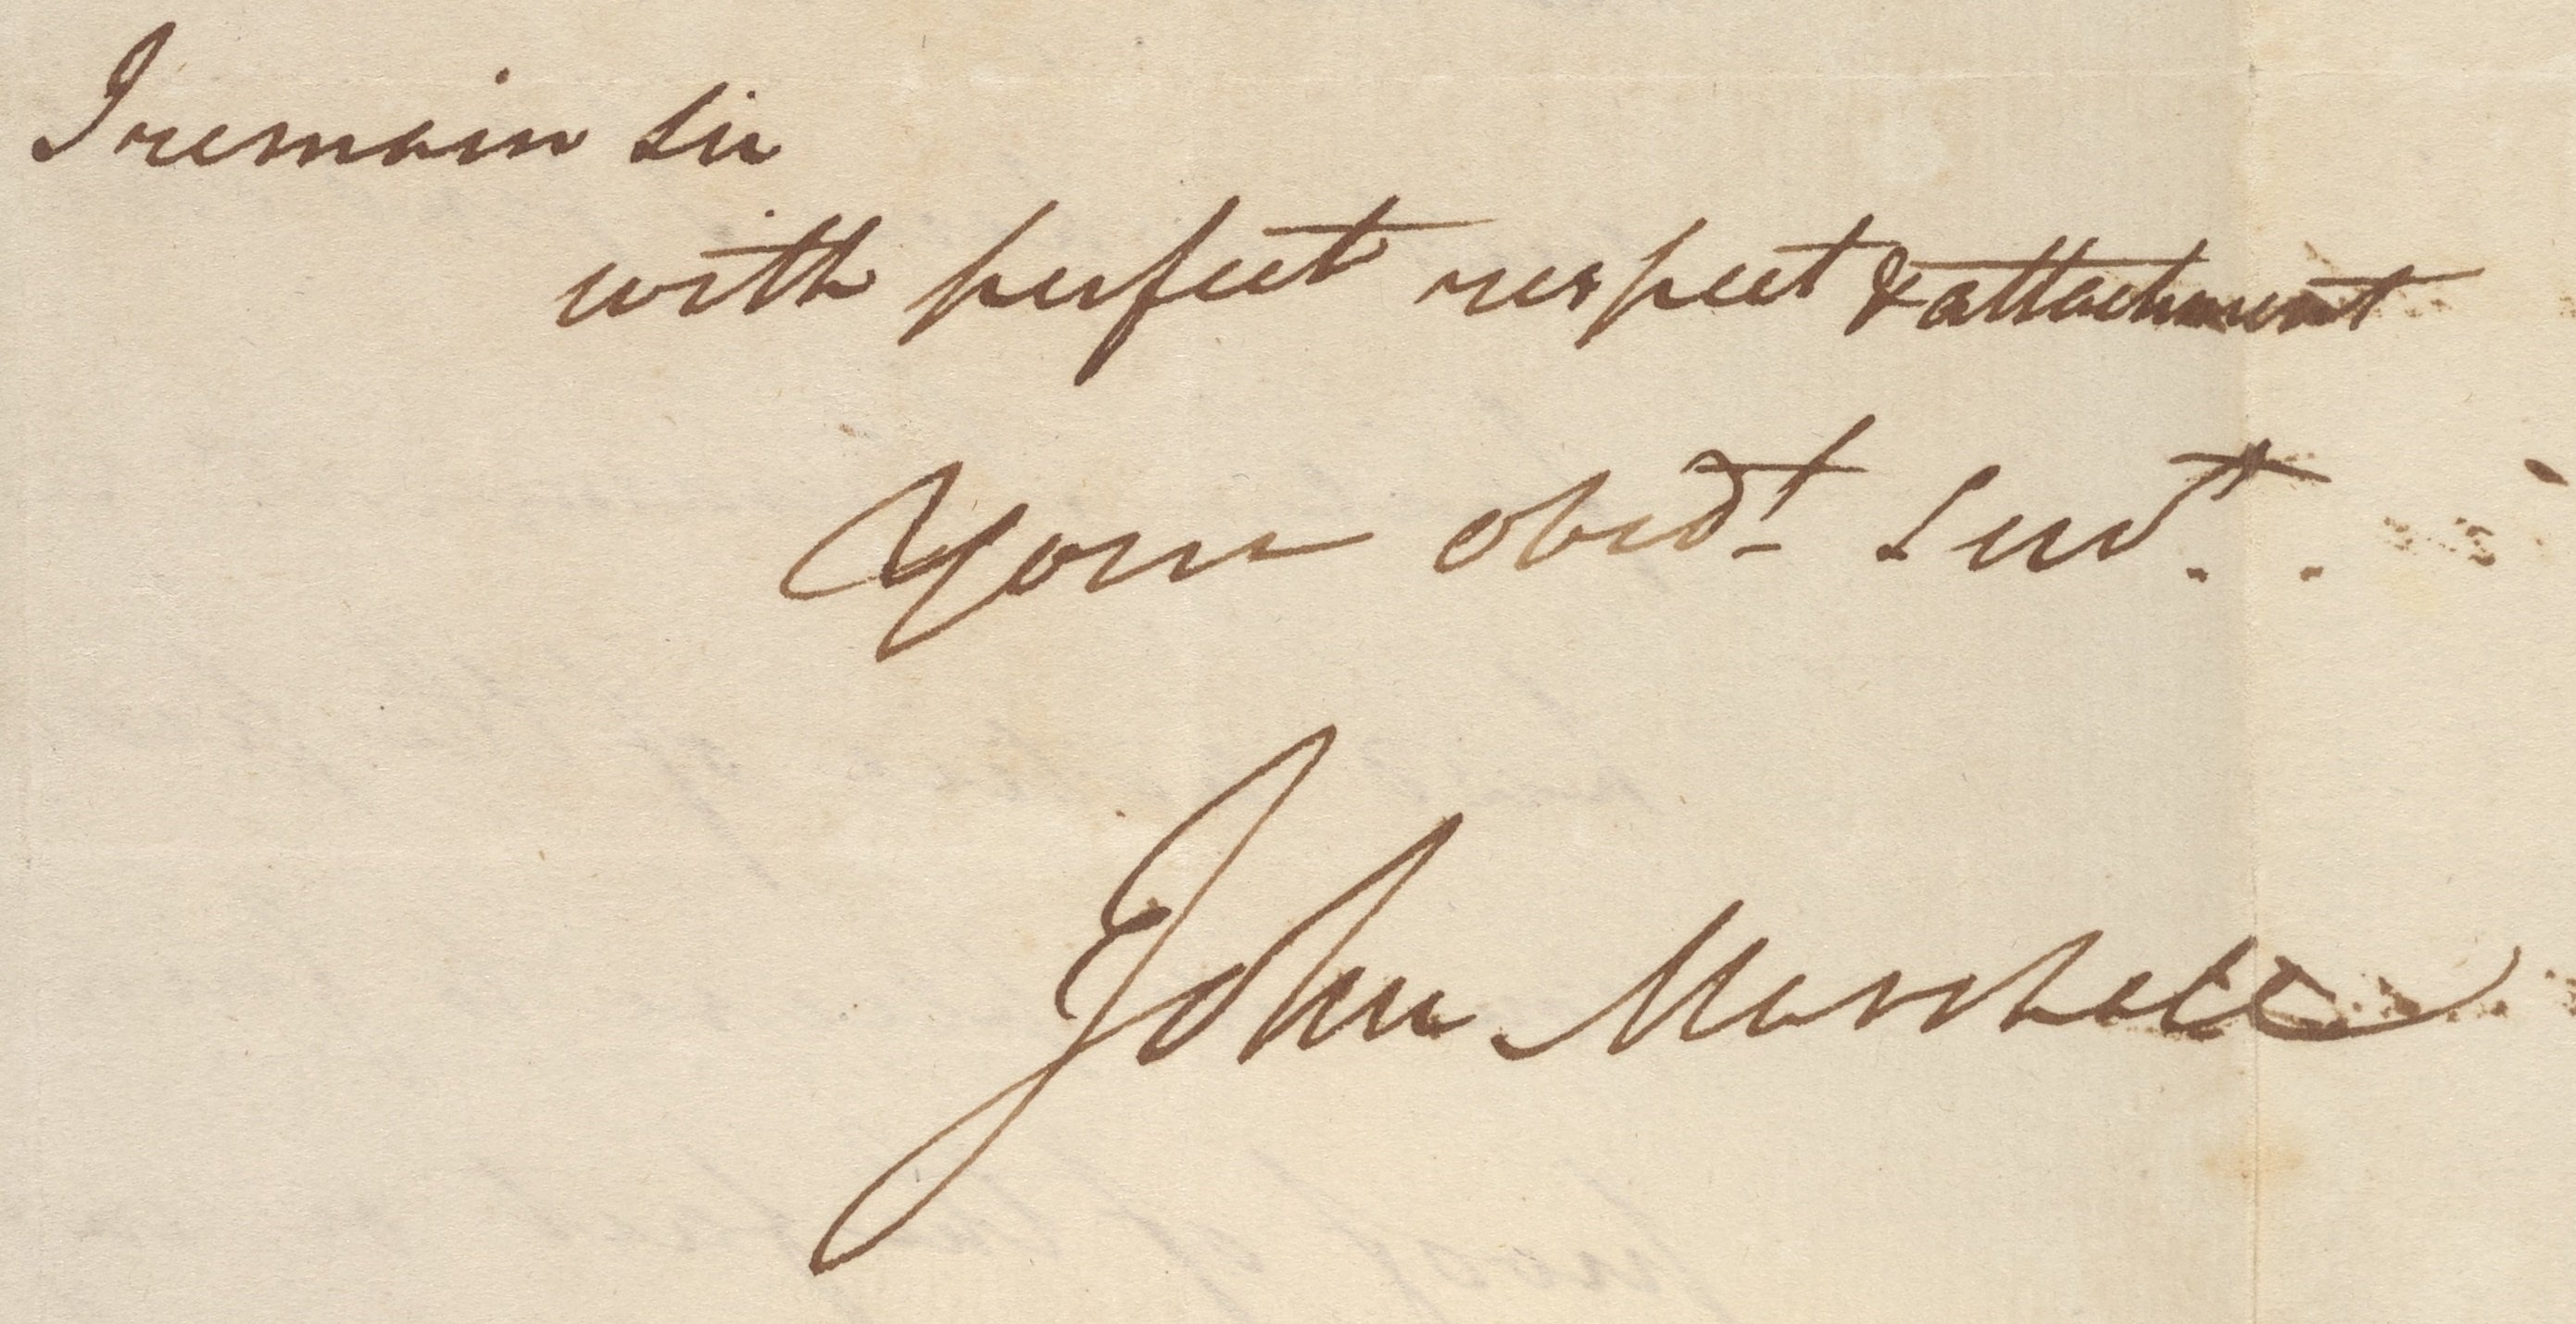 I remain Sir
with perfect respect & attachment
Your obedt Servt.
John Marshall